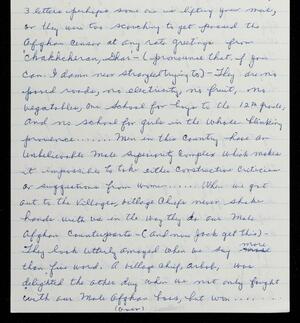 3 letters perhaps some one is lifting your mail,
or they were too scorching to get passed the
Afghan Censor at any rate greetings from
Chakhcheran, Ghor - (pronounce that if you
can. I damn near strangled trying to) - They are no
paved roads, no electricity, no fruit, no
vegetables, one school for boys to the 12th grade,
and no school for girls in the whole thinking
provence....... Men in this Country have an
Unbelievable Male Superiority Complex which makes
it impossible to take either Constructive Criticism
or suggestions from women....... When we get
out to the villages, village Chiefs never shake
hands with us in the way they do our Male
Afghan Counterparts - (and now Jack get this) -
They look utterly amazed when we say more
than five word. A village chief, Arbob, was
delighted the other day when we not only fought
with our Male Afghan boss, but won........
(over)